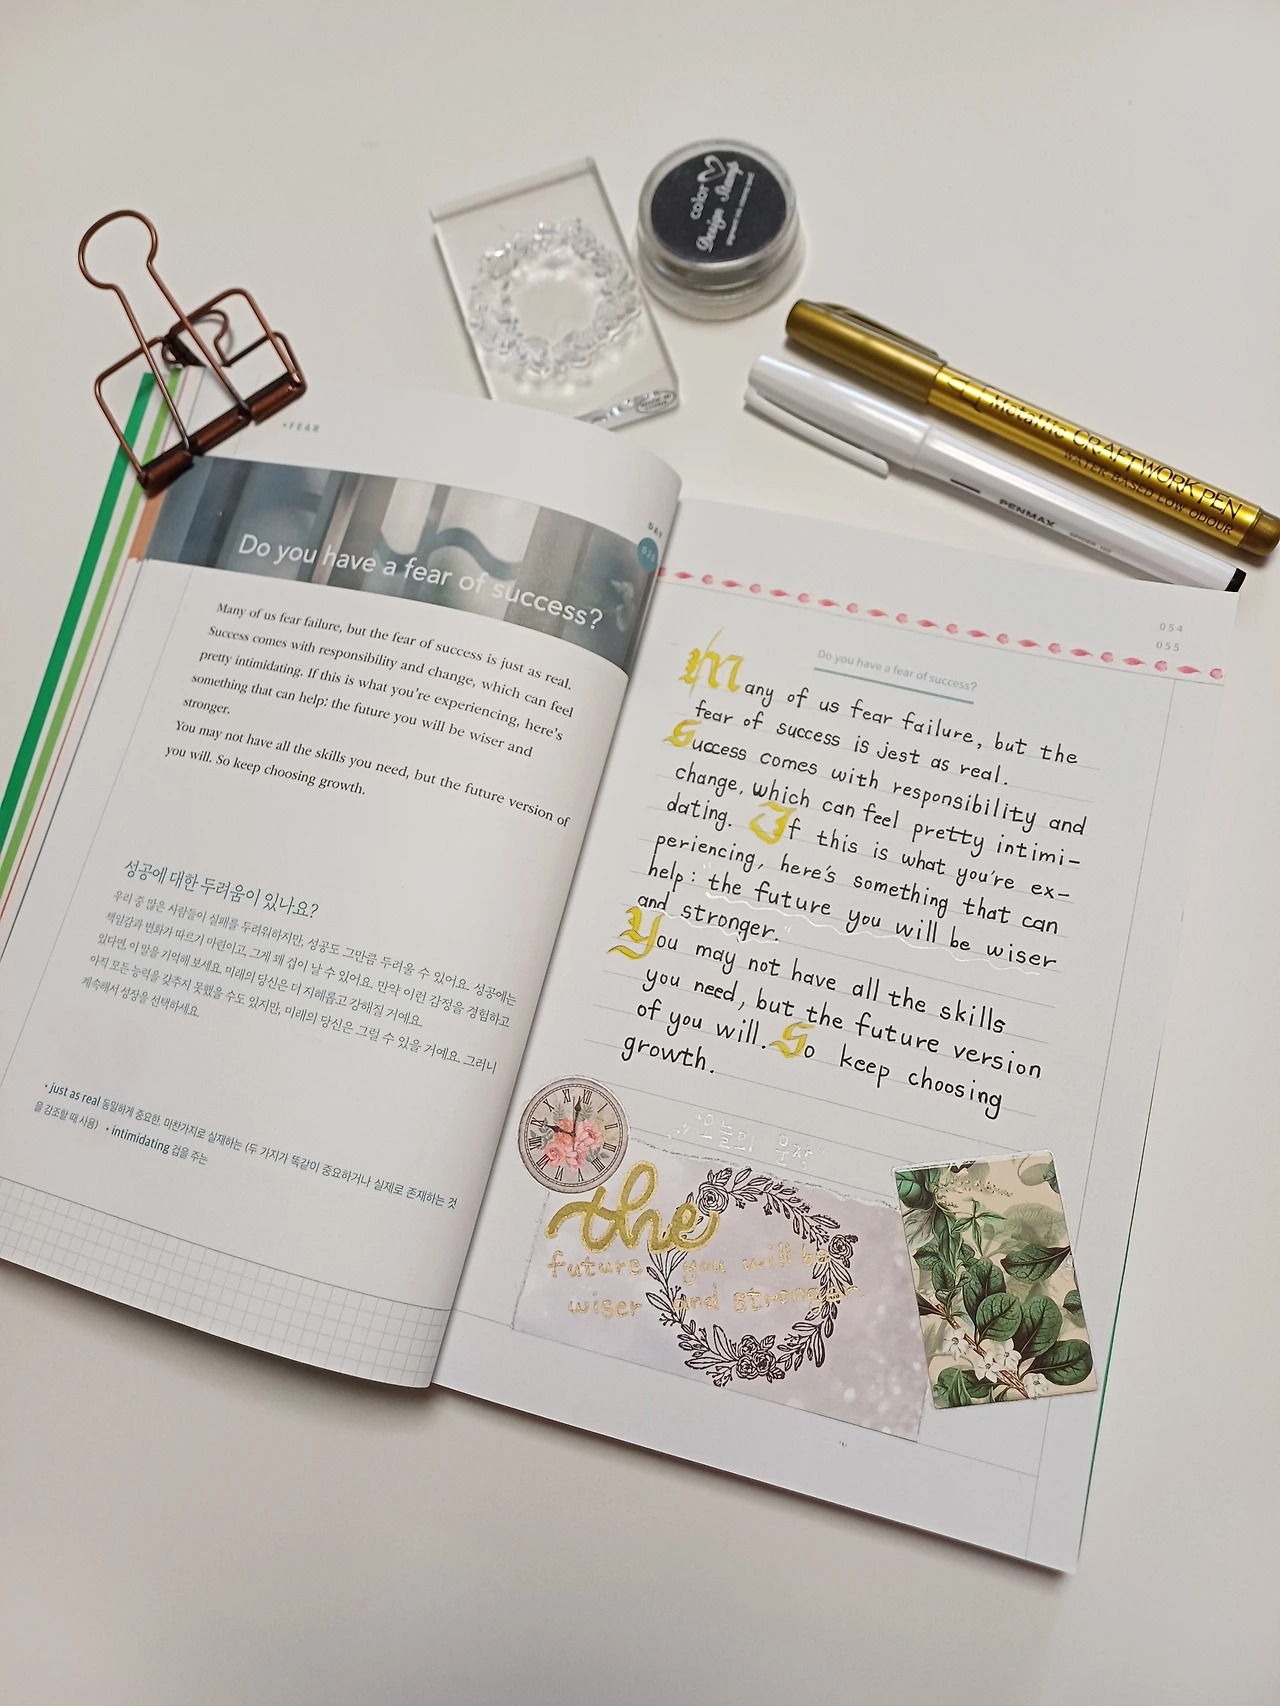 color
Design Stamp
pigment ink stamp pad
Metallic CRAFTWORK PEN
WATER-BASED LOW ODOUR
PENMAX
•FEAR
DAY
Do you have a fear of success?
Many of us fear failure, but the fear of success is just as real.
Success comes with responsibility and change, which can feel
pretty intimidating. If this is what you're experiencing, here's
something that can help: the future you will be wiser and
stronger.
You may not have all the skills you need, but the future version of
you will. So keep choosing growth.
성공에 대한 두려움이 있나요?
우리 중 많은 사람들이 실패를 두려워하지만, 성공도 그만큼 두려울 수 있어요. 성공에는
책임감과 변화가 따르기 마련이고, 그게 꽤 겁이 날 수 있어요. 만약 이런 감정을 경험하고
있다면, 이 말을 기억해 보세요. 미래의 당신은 더 지혜롭고 강해질 거예요.
아직 모든 능력을 갖추지 못했을 수도 있지만, 미래의 당신은 그럴 수 있을 거예요. 그러니
계속해서 성장을 선택하세요.
• just as real 동일하게 중요한, 마찬가지로 실재하는 (두 가지가 똑같이 중요하거나 실제로 존재하는 것
을 강조할 때 사용) • intimidating 겁을 주는
054
055
Do you have a fear of success?
Many of us fear failure, but the
fear of success is jest as real.
Success comes with responsibility and
change, which can feel pretty intimi-
dating. If this is what you're ex-
periencing, here's something that can
help: "the future you will be wiser
and stronger."
You may not have all the skills
you need, but the future version
of you will. So keep choosing
growth.
오늘의 문장
the
future you will be
wiser and stronger.